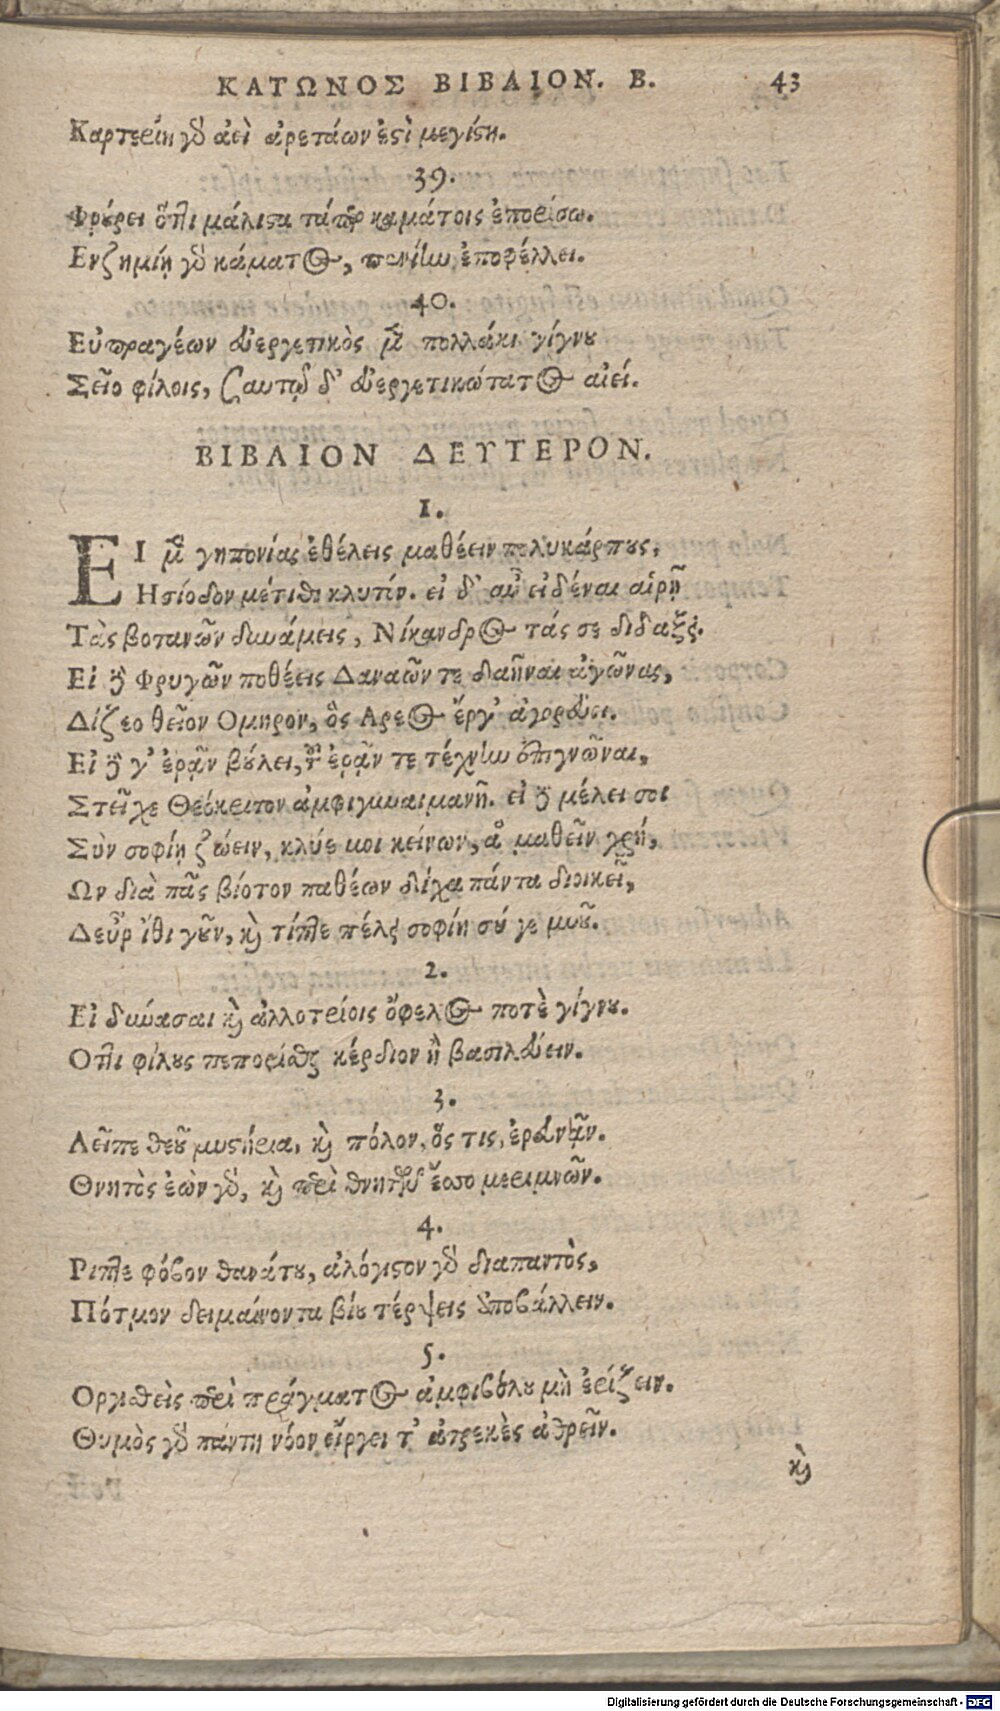 ΚΑΤΩΝΟΣ ΒΙΒΛΙΟΝ. Β. 43
Καρτερίη γὸ ἀεὶ ἀρετάων ἐςὶ μεγίςη.
39.
Φρούρει ὅτ̔ι μάλιςα τάπερ καμάτοις ἐπορίσω.
Ενζημίη γὸ κάματος, πενίην ἐποφέλλει.
40.
Εὐπραγέων εὐεργετικὸς μὲν πολλάκι γίγνου
Σεῖο φίλοις, σαυτῷ δ' εὐεργετικώτατος αἰεί.
ΒΙΒΛΙΟΝ ΔΕΥΤΕΡΟΝ.
1.
ΕΙ μὲν γηπονίας ἐθέλεις μαθέειν πολυκάρπους,
Ησίοδον μέτιθι κλυτίν. εἰ δ' αὖ εἰδέναι αἱρῇ
Τὰς βοτανῶν δυνάμεις, Νίκανδρος τάς σε διδάξει.
Εἰ δὲ Φρυγῶν ποθέεις Δαναῶν τε δαῆναι ἀγῶνας,
Δίζεο θεῖον Ομηρον, ὃς Αρεος ἔργ' ἀγορεύει.
Εἰ δὲ γ' ἐρᾷν βούλει, τοῦ ἐρᾷν τε τέχνην ἐπιγνῶναι,
Στεῖχε Θεόκριτον ἀμφιγυναιμανῆ. εἰ δὲ μέλει σοι
Σὺν σοφίῃ ζώειν, κλύε μοι κείνων, ἃ μαθεῖν χρή,
Ων διὰ πᾶς βίοτον παθέων δίχα πάντα διοικεῖ,
Δεῦρ ἴθι γοῦν, καὶ τίπτε πέλει σοφίη σύ γε μυοῦ.
2.
Εἰ δύνασαι καὶ ἀλλοτρίοις ὄφελος ποτὲ γίγνου.
Οτι φίλους πεπορίσθαι κέρδιον ἢ βασιλεύειν.
3.
Λεῖπε θεοῦ μυςήρια, καὶ πόλον, ὅς τις, ἐρευνᾷν.
Θνητὸς ἐὼν γὸ, καὶ περὶ θνητῶν ἔοσο μεριμνῶν.
4.
Ριπτε φόβον θανάτου, ἀλόγιςον γὸ διαπαντὸς,
Πότμον δειμαίνοντα βίου τέρψεις ὑποβάλλειν.
5.
Οργιθεὶς περὶ πράγματος ἀμφιβόλου μὴ ἐρίζειν.
Θυμὸς γὸ πάντη νόον εἴργει τ' ἀτρεκὲς ἀθρεῖν.
καὶ
Digitalisierung gefördert durch die Deutsche Forschungsgemeinschaft - DFG